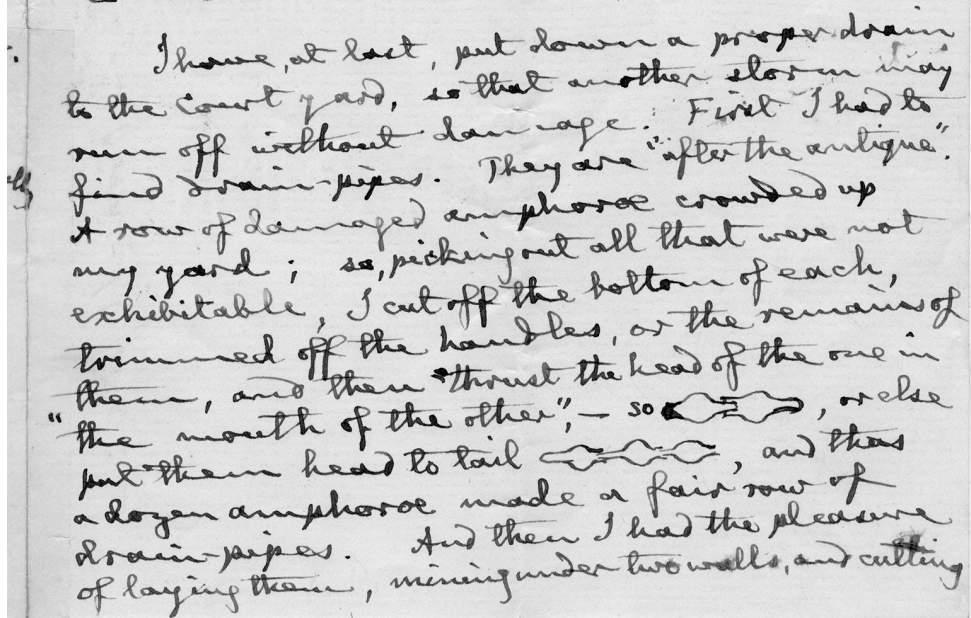 I have, at last, put down a proper drain
to the Court yard, so that another storm may
run off without damage. First I had to
find drain-pipes. They are "after the antique".
A row of damaged amphorae crowded up
my yard; so, picking out all that were not
exhibitable, I cut off the bottom of each,
trimmed off the handles, or the remains of
them, and then "thrust the head of the one in
"the mouth of the other", — so , or else
put them head to tail , and thus
a dozen amphorae made a fair row of
drain-pipes. And then I had the pleasure
of laying them, mining under two walls, and cutting